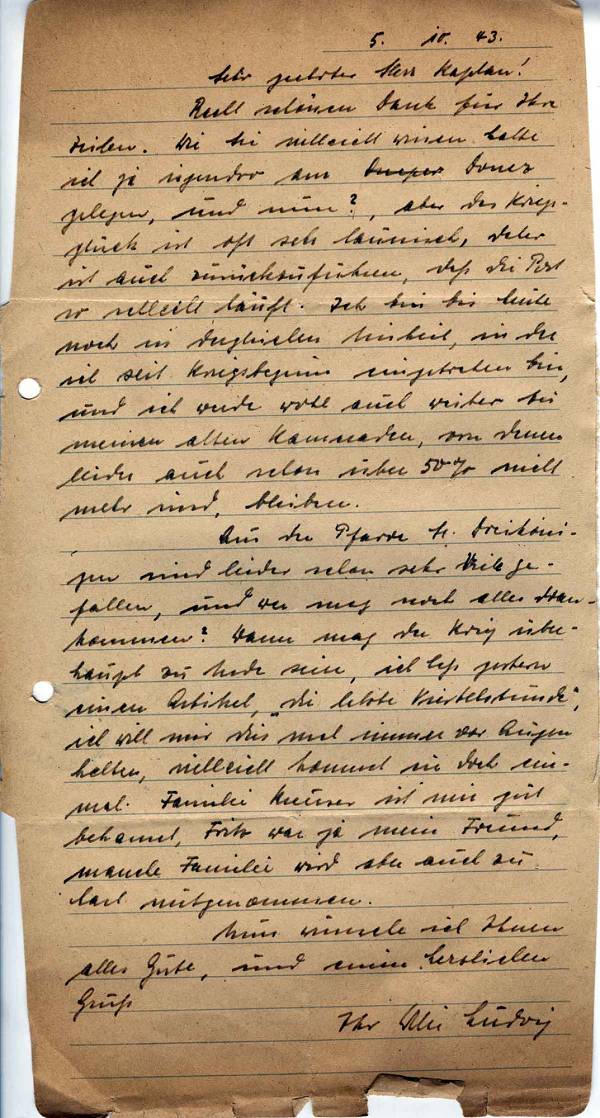 5. 10. 43.
Sehr geehrter Herr Kaplan!
Recht schönen Dank für Ihre
Zeilen. Wie Sie vielleicht wissen hatte
ich ja irgendwo am Dneper Donez
gelegen, und nun?, aber das Kriegs-
glück ist oft sehr launisch, daher
ist auch zurückzuführen, daß die Post
so schlecht läuft. Ich bin bis heute
noch in derselben Einheit, in die
ich seit Kriegsbeginn eingetreten bin,
und ich werde wohl auch weiter bei
meinen alten Kameraden, von denen
leider auch schon über 50% nicht
mehr sind, bleiben.
Aus der Pfarre St. Dreiköni-
gen sind leider schon sehr Viele ge-
fallen, und wer mag noch alles dran-
kommen? Wann mag der Krieg über-
haupt zu Ende sein, ich las gestern
einen Artikel, "die letzte Viertelstunde",
ich will mir dies mal immer vor Augen
halten, vielleicht kommt sie doch ein-
mal. Familie ist mir gut
bekannt, Fritz war ja mein Freund,
manche Familie wird aber auch zu
hart mitgenommen.
Nun wünsche ich Ihnen
alles Gute, und einen herzlichen
Gruß
Ihr Ludwig